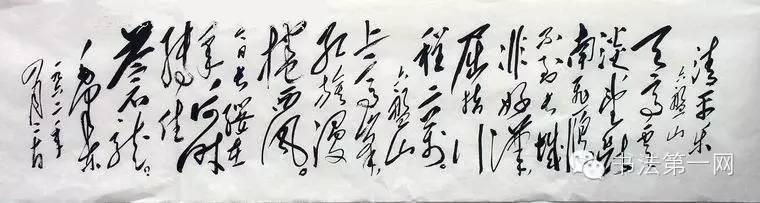 清平乐
六盘山
天高云
淡望断
南飞雁
不到长城
非好汉
屈指行
程二万。
六盘山
上高峰
红旗漫
卷西风。
今日长缨在
手何时
缚住
苍龙。
毛泽东
一九六二年
四月二十日
书法第一网